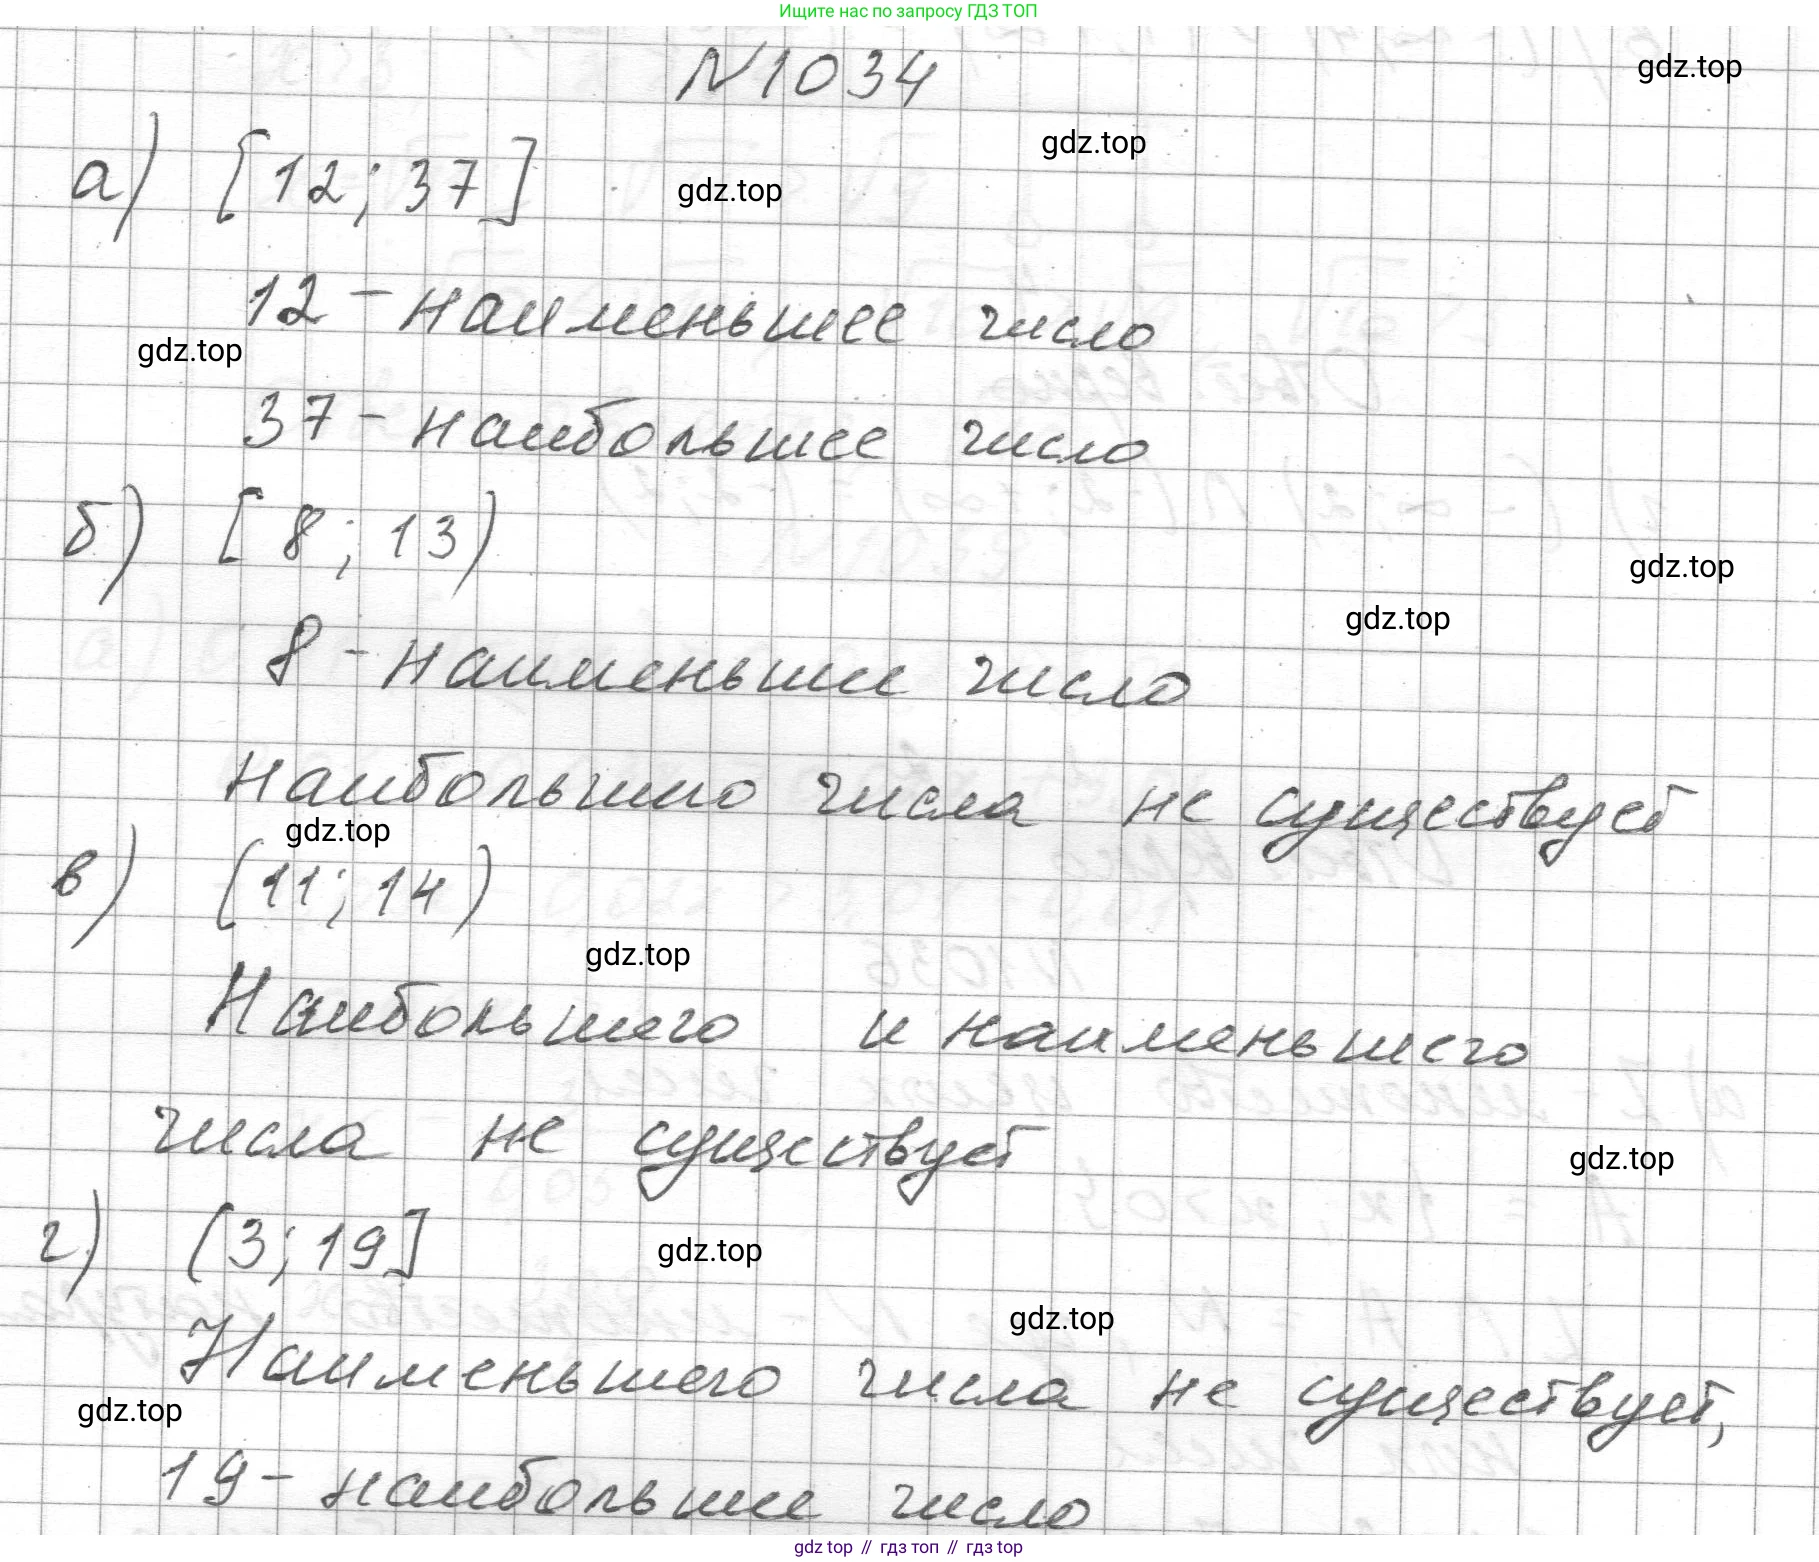 Ищите нас по запросу ГДЗ ТОП
N1034
gdz.top
gdz.top
а) [12; 37]
gdz.top
12 - наименьшее число
gdz.top
37 - наибольшее число
б) [8; 13)
gdz.top
gdz.top
8 - наименьшее число
наибольшего числа не существует
gdz.top
в) (11; 14)
gdz.top
Наибольшего и наименьшего
числа не существует
gdz.top
г) (3; 19]
gdz.top
gdz.top
Наименьшего числа не существует,
gdz.top
19 - наибольшее число
gdz.top // гдз топ // гдз.top